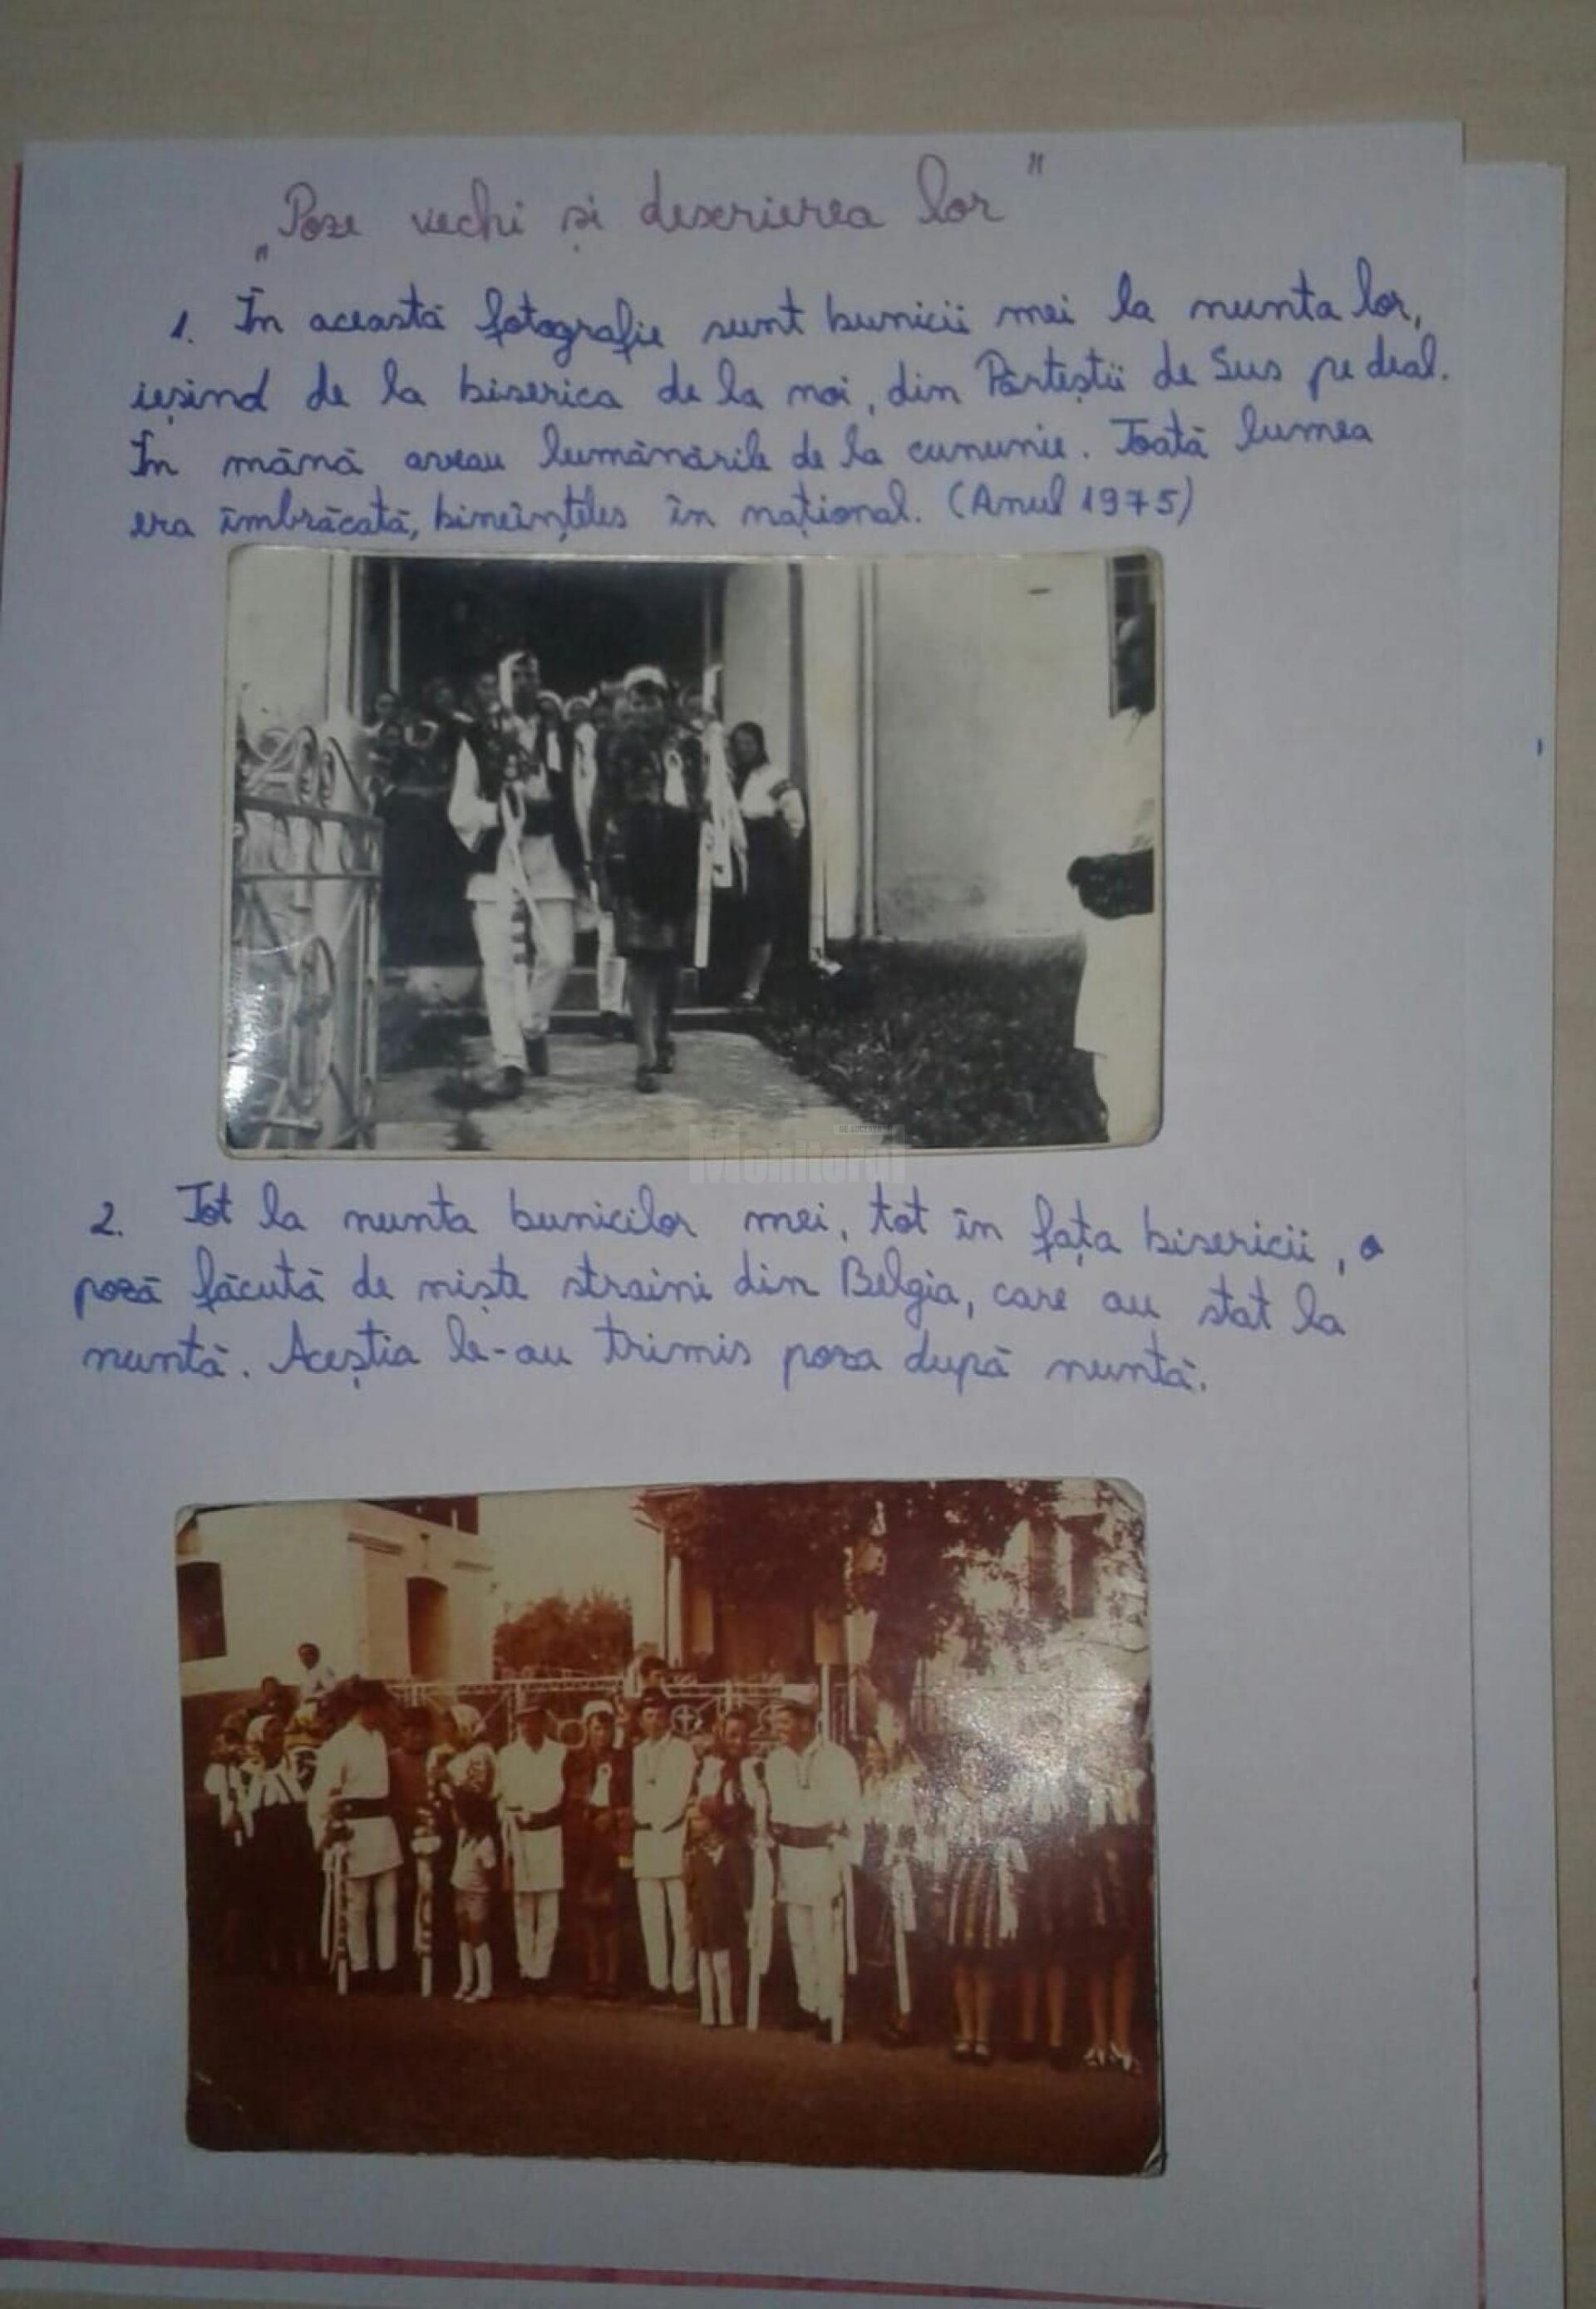 „Poze vechi și descrierea lor"
1. În această fotografie sunt bunicii mei la nunta lor,
ieșind de la biserica de la noi, din Pârteștii de Sus pe deal.
În mână aveau lumânările de la cununie. Toată lumea
era îmbrăcată, bineînțeles în național. (Anul 1975)
Monitorul
2. Tot la nunta bunicilor mei, tot în fața bisericii, o
poză făcută de niște straini din Belgia, care au stat la
nuntă. Aceștia le-au trimis poza după nuntă.